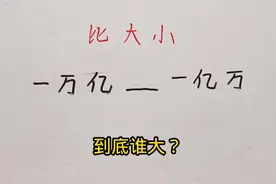 比大小
一万亿__一亿万
到底谁大？